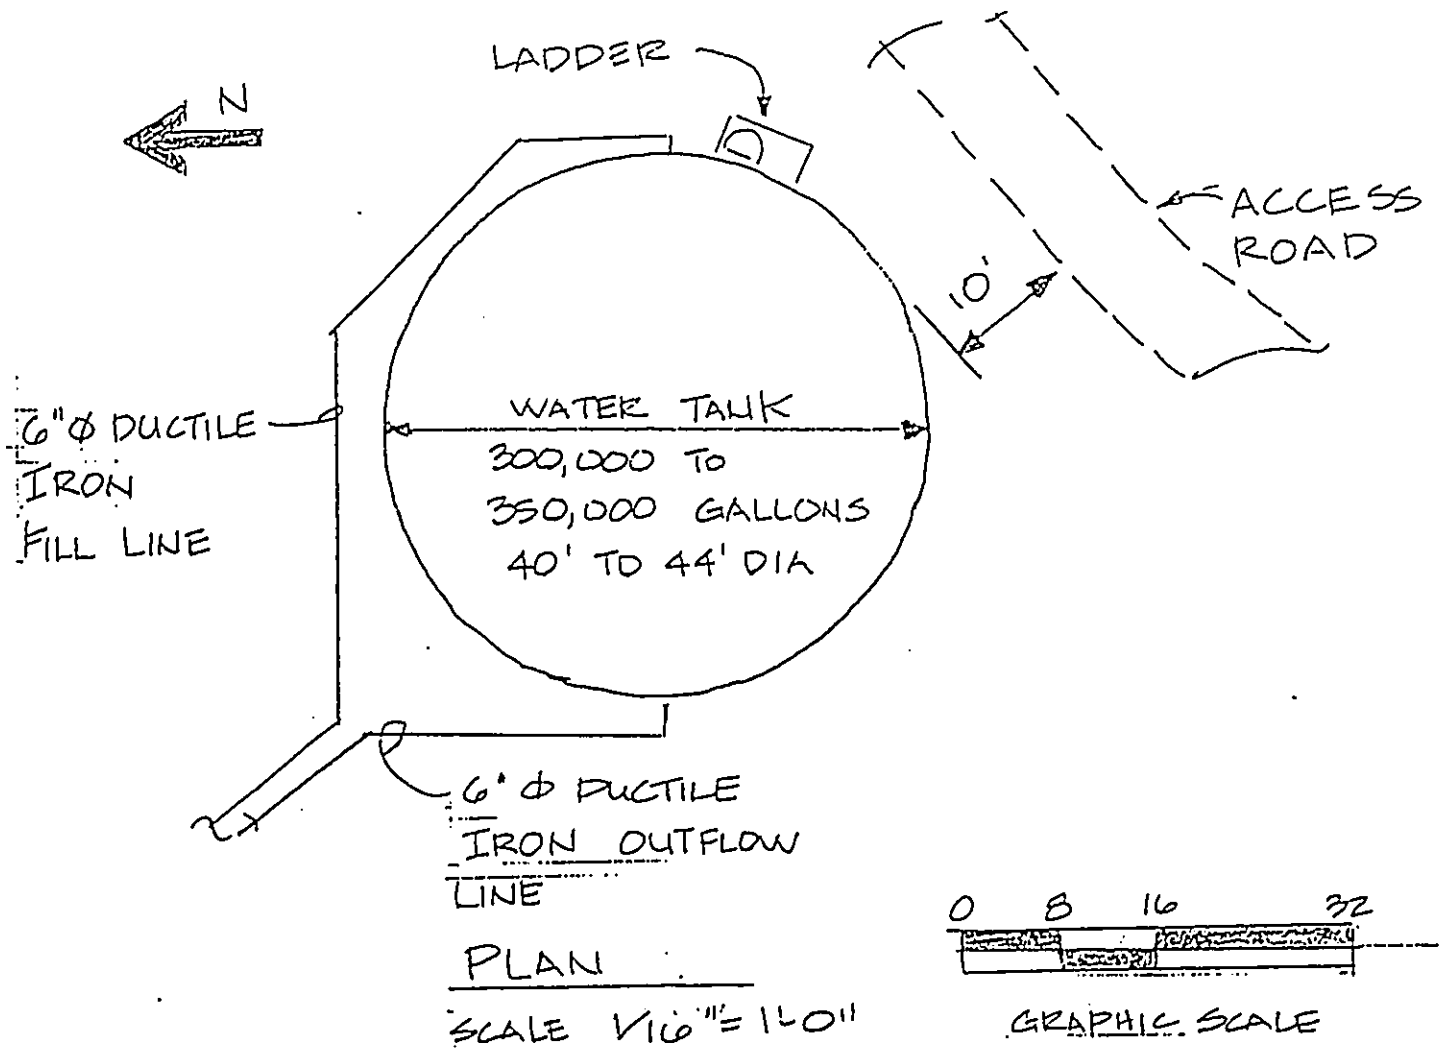 LADDER
N
D
ACCESS
ROAD
10'
6"Φ DUCTILE
IRON
FILL LINE
WATER TANK
300,000 TO
350,000 GALLONS
40' TO 44' DIA
6"Φ DUCTILE
IRON OUTFLOW
LINE
PLAN
SCALE 1/16"=1'-0"
0 8 16 32
GRAPHIC SCALE